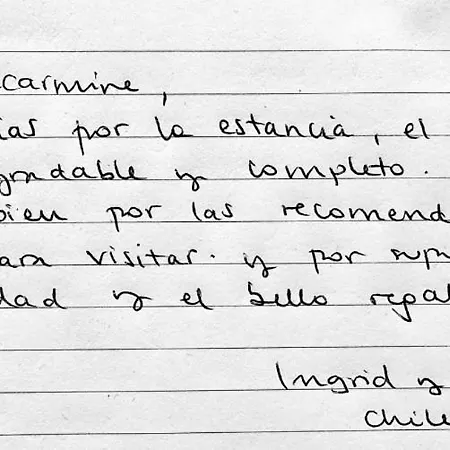 carmine,
ias por la estancia, el
gradable y completo.
bien por las recomend
ara visitar. y por sup
dad y el bello regal
Ingrid y
Chile